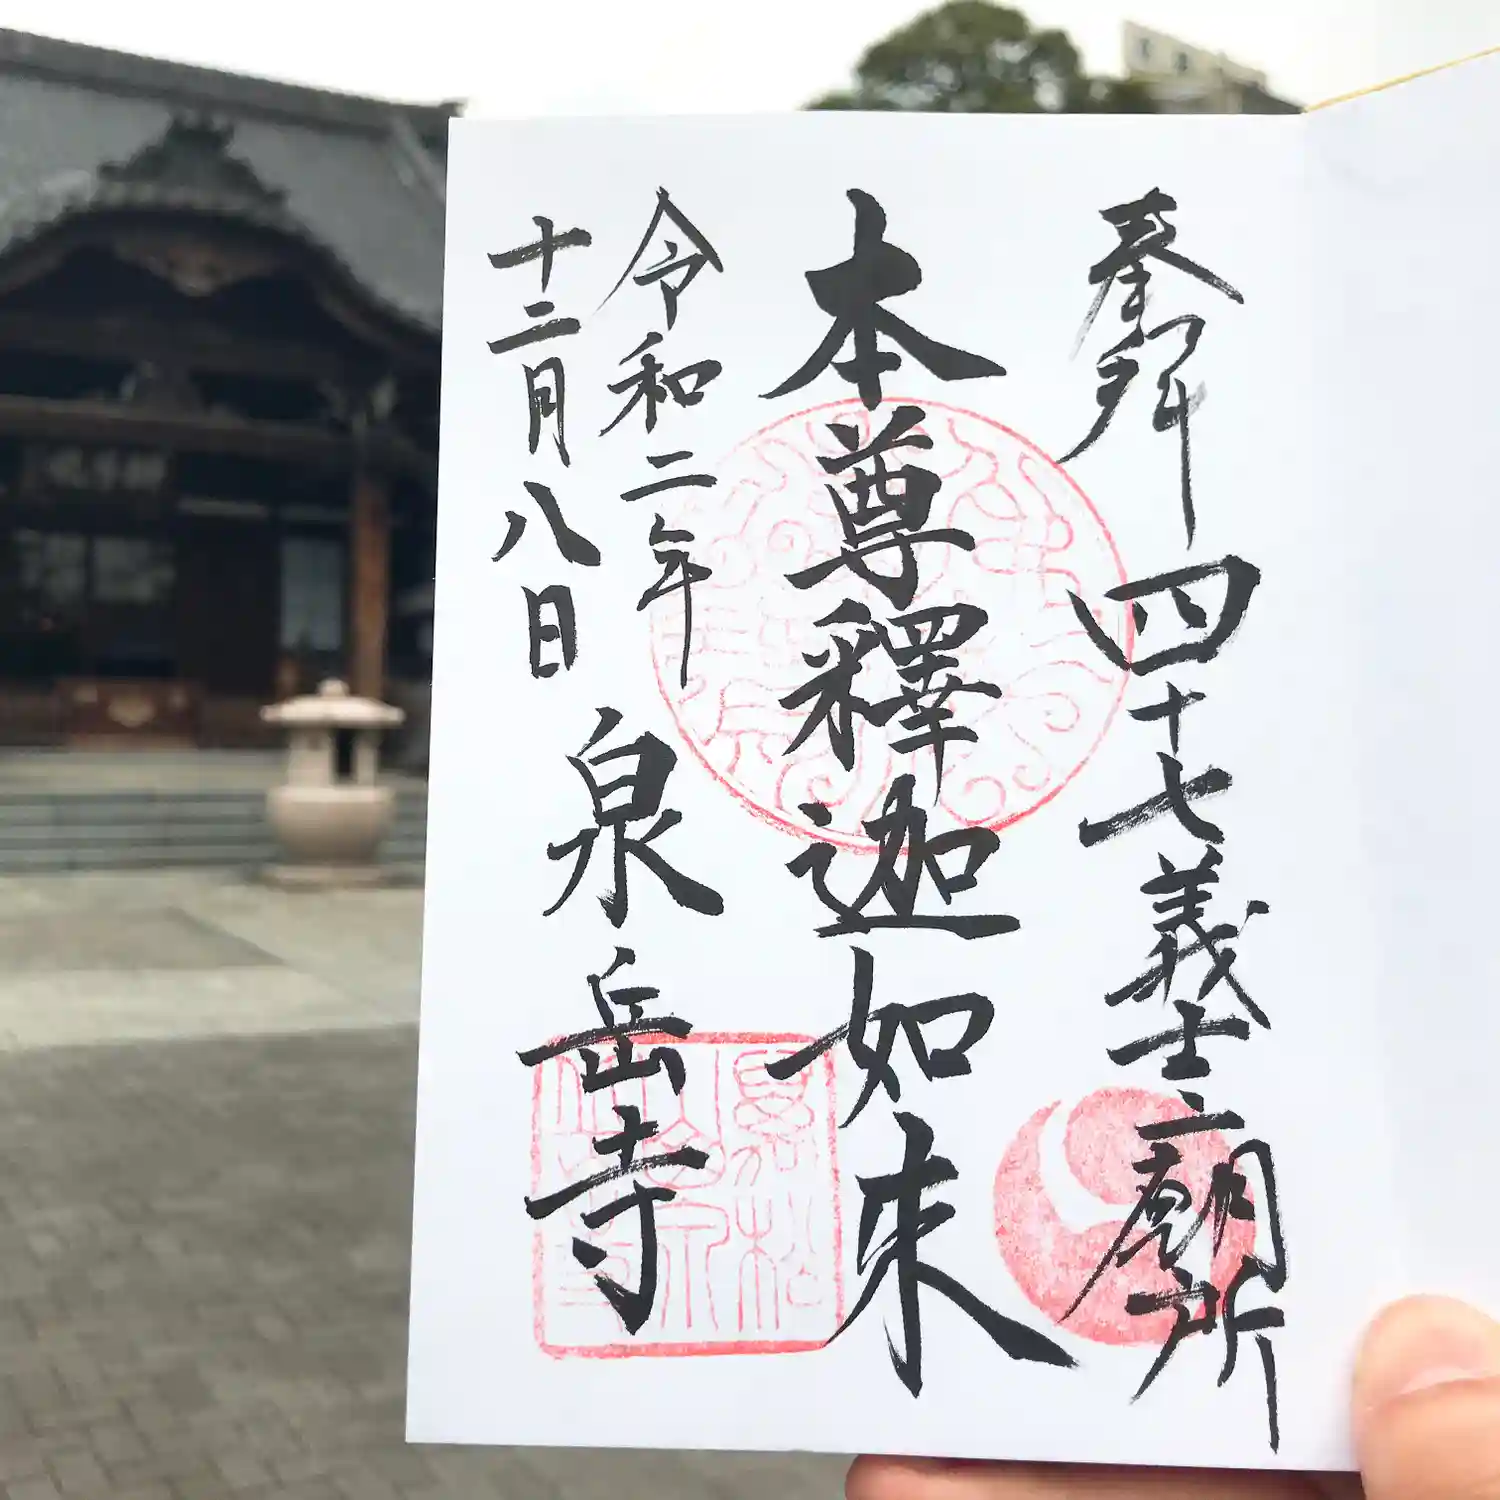 奉拝 四十七義士廟所
本尊釋迦如来
令和二年
十二月八日
泉岳寺